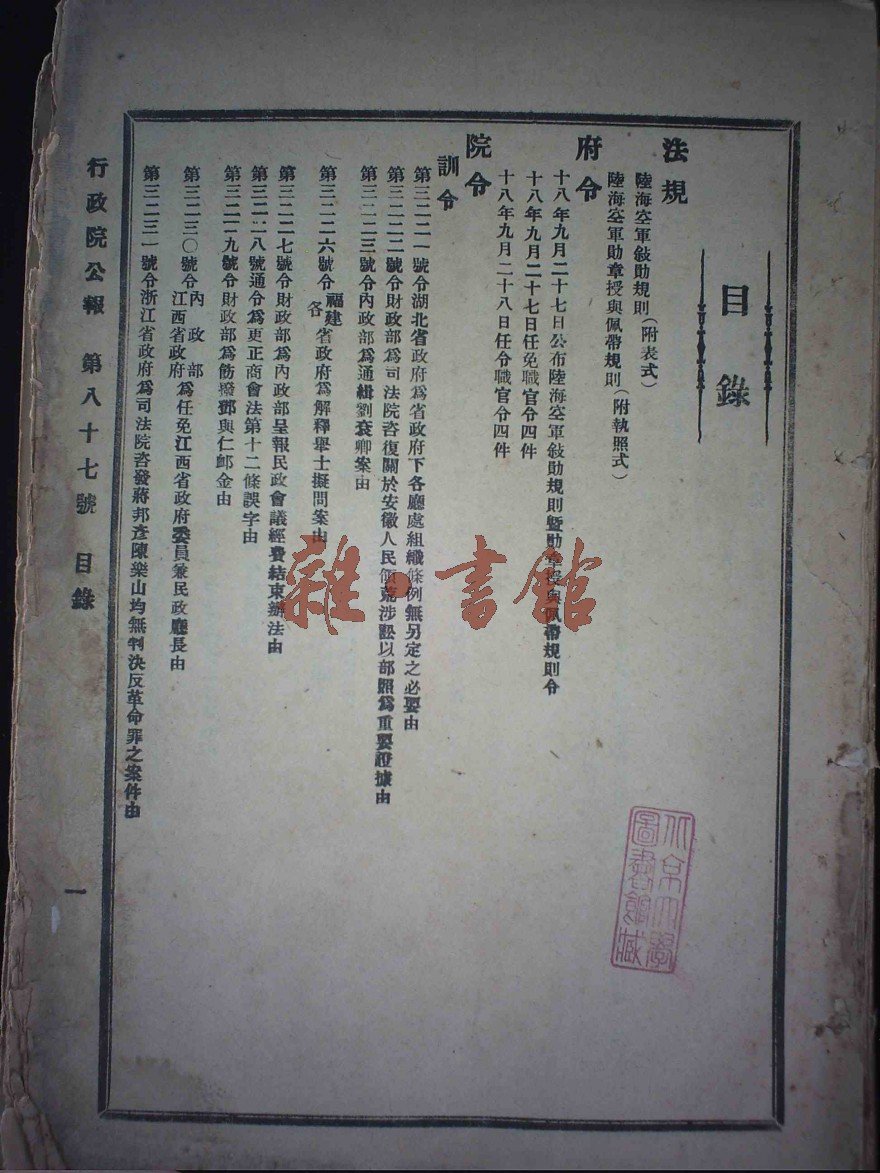 目錄
法規
陸海空軍敍勛規則（附表式）
陸海空軍勛章授與佩帶規則（附執照式）
府令
十八年九月二十七日公布陸海空軍敍勛規則暨勛章授與佩帶規則令
十八年九月二十七日任免職官令四件
十八年九月二十八日任令職官令四件
院令
訓令
第三二二一號令湖北省政府爲省政府下各廳處組織條例無另定之必要由
第三二二二號令財政部爲司法院咨復關於安徽人民領荒涉訟以部照爲重要證據由
第三二二三號令內政部爲通緝劉袞卿案由
第三二二六號令福建各省政府爲解釋舉士擬問案由
第三二二七號令財政部爲內政部呈報民政會議經費結束辦法由
第三二二八號通令爲更正商會法第十二條誤字由
第三二二九號令財政部爲飭撥鄧與仁卹金由
第三二三〇號令內政部江西省政府爲任免江西省政府委員兼民政廳長由
第三二三一號令浙江省政府爲司法院咨發蔣邦彥陳樂山均無判決反革命罪之案件由
行政院公報 第八十七號 目錄
一
北京大學
圖書館藏
雜·書館